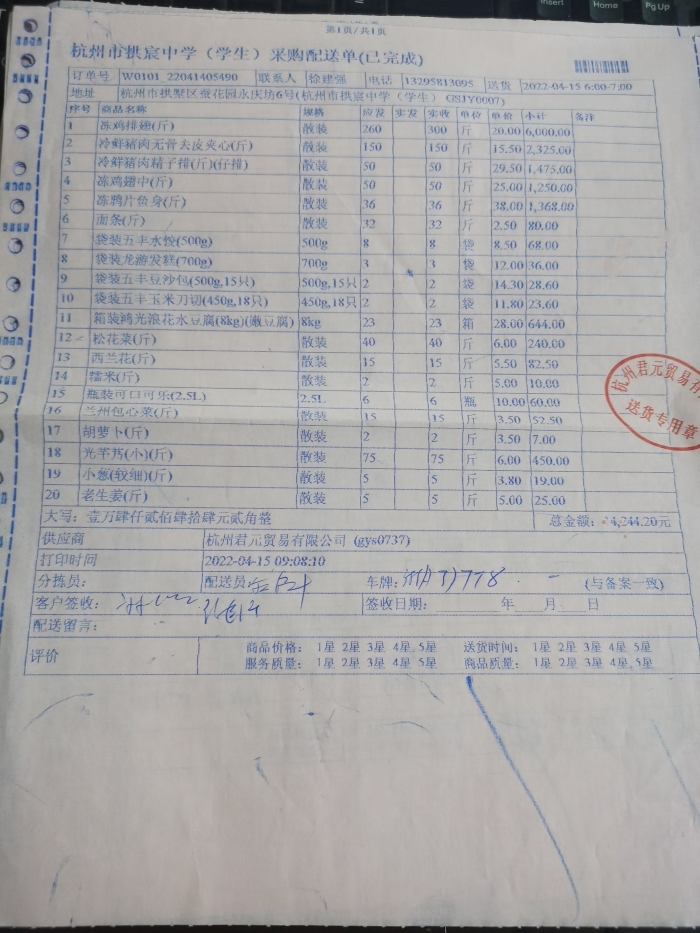 Insert Home PgUp
第1页/共1页
杭州市拱宸中学（学生）采购配送单(已完成)
订单号 W0101_22041405490 联系人 徐建强 电话 13295813095 送货 2022-04-15 6:00-7:00
地址 杭州市拱墅区蚕花园永庆坊6号(杭州市拱宸中学（学生） GSJY0007)
序号 商品名称 规格 应发 实发 实收 单位 单价 小计 备注
1 冻鸡排翅(斤) 散装 260 300 斤 20.00 6,000.00
2 冷鲜猪肉无骨去皮夹心(斤) 散装 150 150 斤 15.50 2,325.00
3 冷鲜猪肉精子排(斤)(仔排) 散装 50 50 斤 29.50 1,475.00
4 冻鸡翅中(斤) 散装 50 50 斤 25.00 1,250.00
5 冻鸦片鱼身(斤) 散装 36 36 斤 38.00 1,368.00
6 面条(斤) 散装 32 32 斤 2.50 80.00
7 袋装五丰水饺(500g) 500g 8 8 袋 8.50 68.00
8 袋装龙游发糕(700g) 700g 3 3 袋 12.00 36.00
9 袋装五丰豆沙包(500g,15只) 500g,15只 2 2 袋 14.30 28.60
10 袋装五丰玉米刀切(450g,18只) 450g,18只 2 2 袋 11.80 23.60
11 箱装鸿光浪花水豆腐(8kg)(嫩豆腐) 8kg 23 23 箱 28.00 644.00
12 松花菜(斤) 散装 40 40 斤 6.00 240.00
13 西兰花(斤) 散装 15 15 斤 5.50 82.50
14 糯米(斤) 散装 2 2 斤 5.00 10.00
15 瓶装可口可乐(2.5L) 2.5L 6 6 瓶 10.00 60.00
16 兰州包心菜(斤) 散装 15 15 斤 3.50 52.50
17 胡萝卜(斤) 散装 2 2 斤 3.50 7.00
18 光芋艿(小)(斤) 散装 75 75 斤 6.00 450.00
19 小葱(较细)(斤) 散装 5 5 斤 3.80 19.00
20 老生姜(斤) 散装 5 5 斤 5.00 25.00
杭州君元贸易有
送货专用章
大写：壹万肆仟贰佰肆拾肆元贰角整 总金额：14,244.20元
供应商 杭州君元贸易有限公司 (gys0737)
打印时间 2022-04-15 09:08:10
分拣员： 配送员： 车牌： (与备案一致)
客户签收： 签收日期： 年 月 日
配送留言：
评价 商品价格： 1星 2星 3星 4星 5星 送货时间： 1星 2星 3星 4星 5星
服务质量： 1星 2星 3星 4星 5星 商品质量： 1星 2星 3星 4星 5星